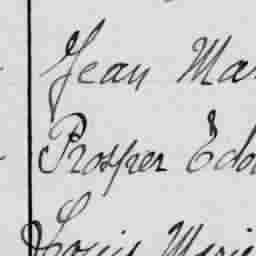 Jean Mar
Prosper Edo
Louis Marie